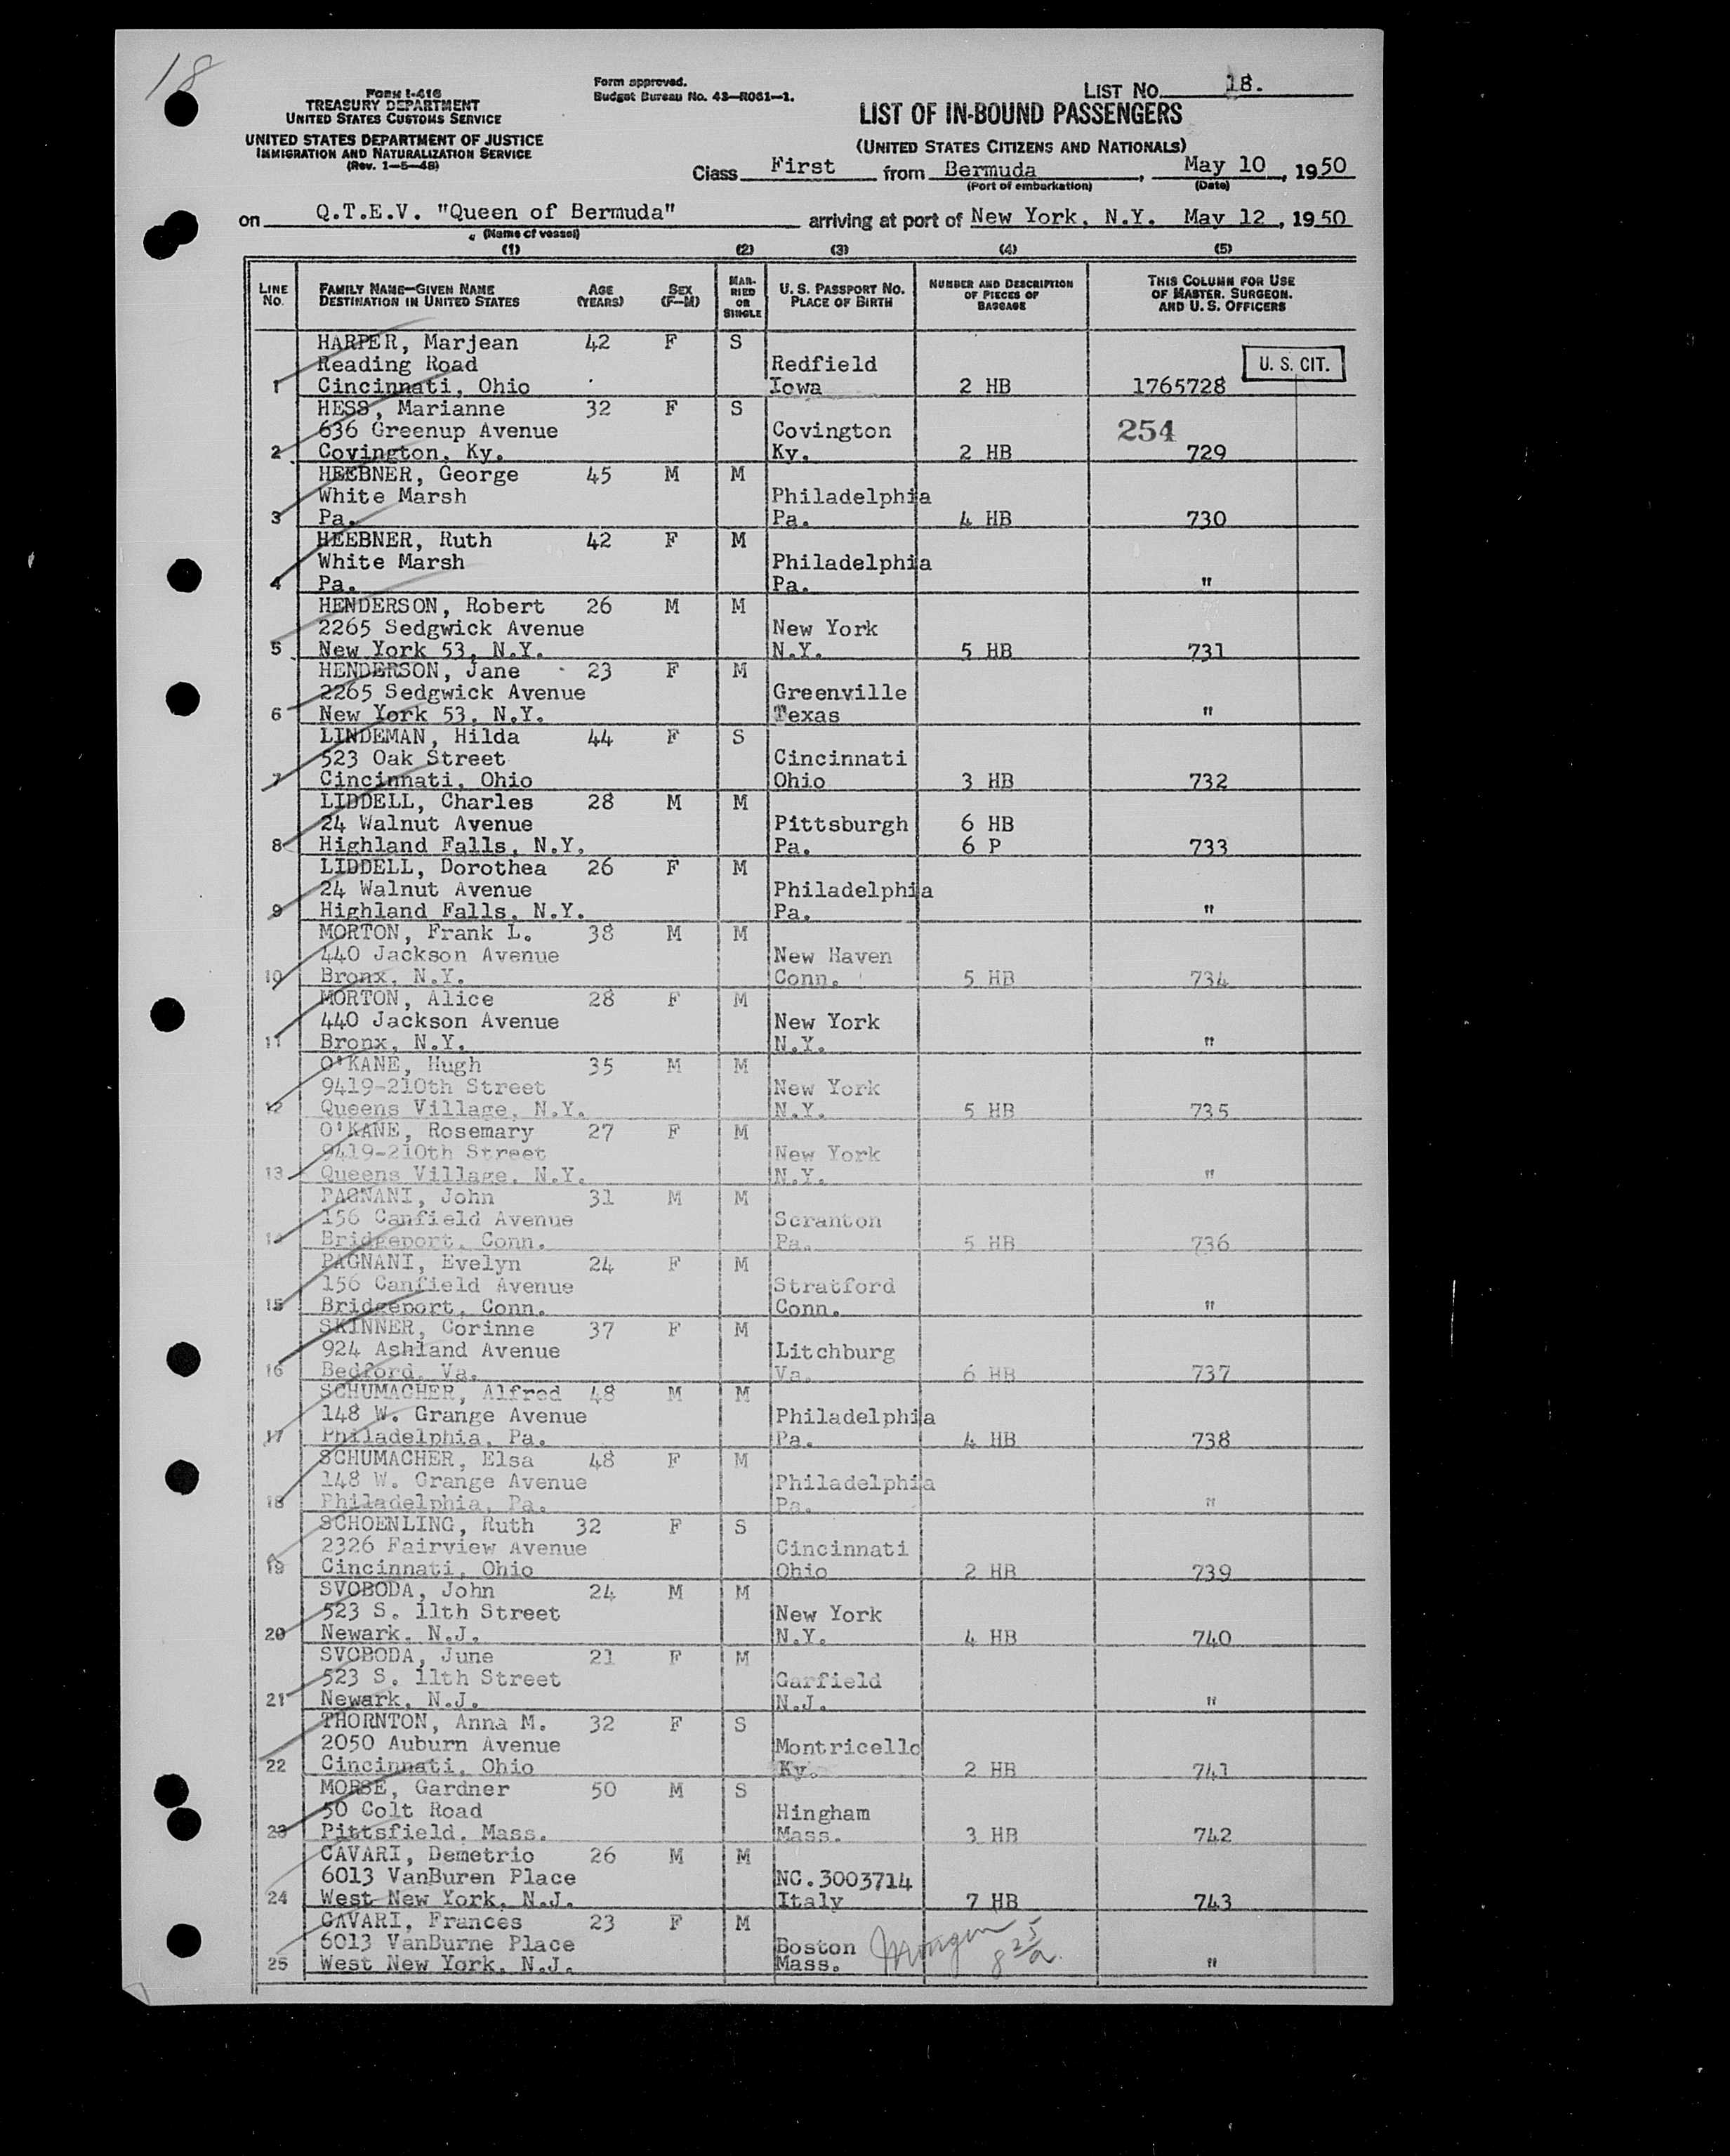 18
FORM I-416
TREASURY DEPARTMENT
UNITED STATES CUSTOMS SERVICE
UNITED STATES DEPARTMENT OF JUSTICE
IMMIGRATION AND NATURALIZATION SERVICE
(Rev. 1-5-48)
Form approved.
Budget Bureau No. 43-R061-1.
LIST NO. 18.
LIST OF IN-BOUND PASSENGERS
(UNITED STATES CITIZENS AND NATIONALS)
Class First from Bermuda, May 10, 1950
(Port of embarkation) (Date)
on Q.T.E.V. "Queen of Bermuda" arriving at port of New York, N.Y. May 12, 1950
(Name of vessel)
(1) (2) (3) (4) (5)
LINE NO. FAMILY NAME—GIVEN NAME DESTINATION IN UNITED STATES AGE (YEARS) SEX (F—M) MARRIED OR SINGLE U. S. PASSPORT NO. PLACE OF BIRTH NUMBER AND DESCRIPTION OF PIECES OF BAGGAGE THIS COLUMN FOR USE OF MASTER, SURGEON, AND U. S. OFFICERS
HARPER, Marjean 42 F S
Reading Road Redfield U. S. CIT.
1 Cincinnati, Ohio Iowa 2 HB 1765728
HESS, Marianne 32 F S
636 Greenup Avenue Covington 254
2 Covington, Ky. Ky. 2 HB 729
HEEBNER, George 45 M M
White Marsh Philadelphia
3 Pa. Pa. 4 HB 730
HEEBNER, Ruth 42 F M
White Marsh Philadelphia
4 Pa. Pa. "
HENDERSON, Robert 26 M M
2265 Sedgwick Avenue New York
5 New York 53, N.Y. N.Y. 5 HB 731
HENDERSON, Jane 23 F M
2265 Sedgwick Avenue Greenville
6 New York 53, N.Y. Texas "
LINDEMAN, Hilda 44 F S
523 Oak Street Cincinnati
7 Cincinnati, Ohio Ohio 3 HB 732
LIDDELL, Charles 28 M M
24 Walnut Avenue Pittsburgh 6 HB
8 Highland Falls, N.Y. Pa. 6 P 733
LIDDELL, Dorothea 26 F M
24 Walnut Avenue Philadelphia
9 Highland Falls, N.Y. Pa. "
MORTON, Frank L. 38 M M
440 Jackson Avenue New Haven
10 Bronx, N.Y. Conn. 5 HB 734
MORTON, Alice 28 F M
440 Jackson Avenue New York
11 Bronx, N.Y. N.Y. "
O'KANE, Hugh 35 M M
9419-210th Street New York
12 Queens Village, N.Y. N.Y. 5 HB 735
O'KANE, Rosemary 27 F M
9419-210th Street New York
13 Queens Village, N.Y. N.Y. "
PAGNANI, John 31 M M
156 Canfield Avenue Scranton
14 Bridgeport, Conn. Pa. 5 HB 736
PAGNANI, Evelyn 24 F M
156 Canfield Avenue Stratford
15 Bridgeport, Conn. Conn. "
SKINNER, Corinne 37 F M
924 Ashland Avenue Litchburg
16 Bedford, Va. Va. 6 HB 737
SCHUMACHER, Alfred 48 M M
148 W. Grange Avenue Philadelphia
17 Philadelphia, Pa. Pa. 4 HB 738
SCHUMACHER, Elsa 48 F M
148 W. Grange Avenue Philadelphia
18 Philadelphia, Pa. Pa. "
SCHOENLING, Ruth 32 F S
2326 Fairview Avenue Cincinnati
19 Cincinnati, Ohio Ohio 2 HB 739
SVOBODA, John 24 M M
523 S. 11th Street New York
20 Newark, N.J. N.Y. 4 HB 740
SVOBODA, June 21 F M
523 S. 11th Street Garfield
21 Newark, N.J. N.J. "
THORNTON, Anna M. 32 F S
2050 Auburn Avenue Montricello
22 Cincinnati, Ohio Ky. 2 HB 741
MORSE, Gardner 50 M S
50 Colt Road Hingham
23 Pittsfield, Mass. Mass. 3 HB 742
CAVARI, Demetrio 26 M M
6013 VanBuren Place NC.3003714
24 West New York, N.J. Italy 7 HB 743
CAVARI, Frances 23 F M
6013 VanBurne Place Boston
25 West New York, N.J. Mass. "